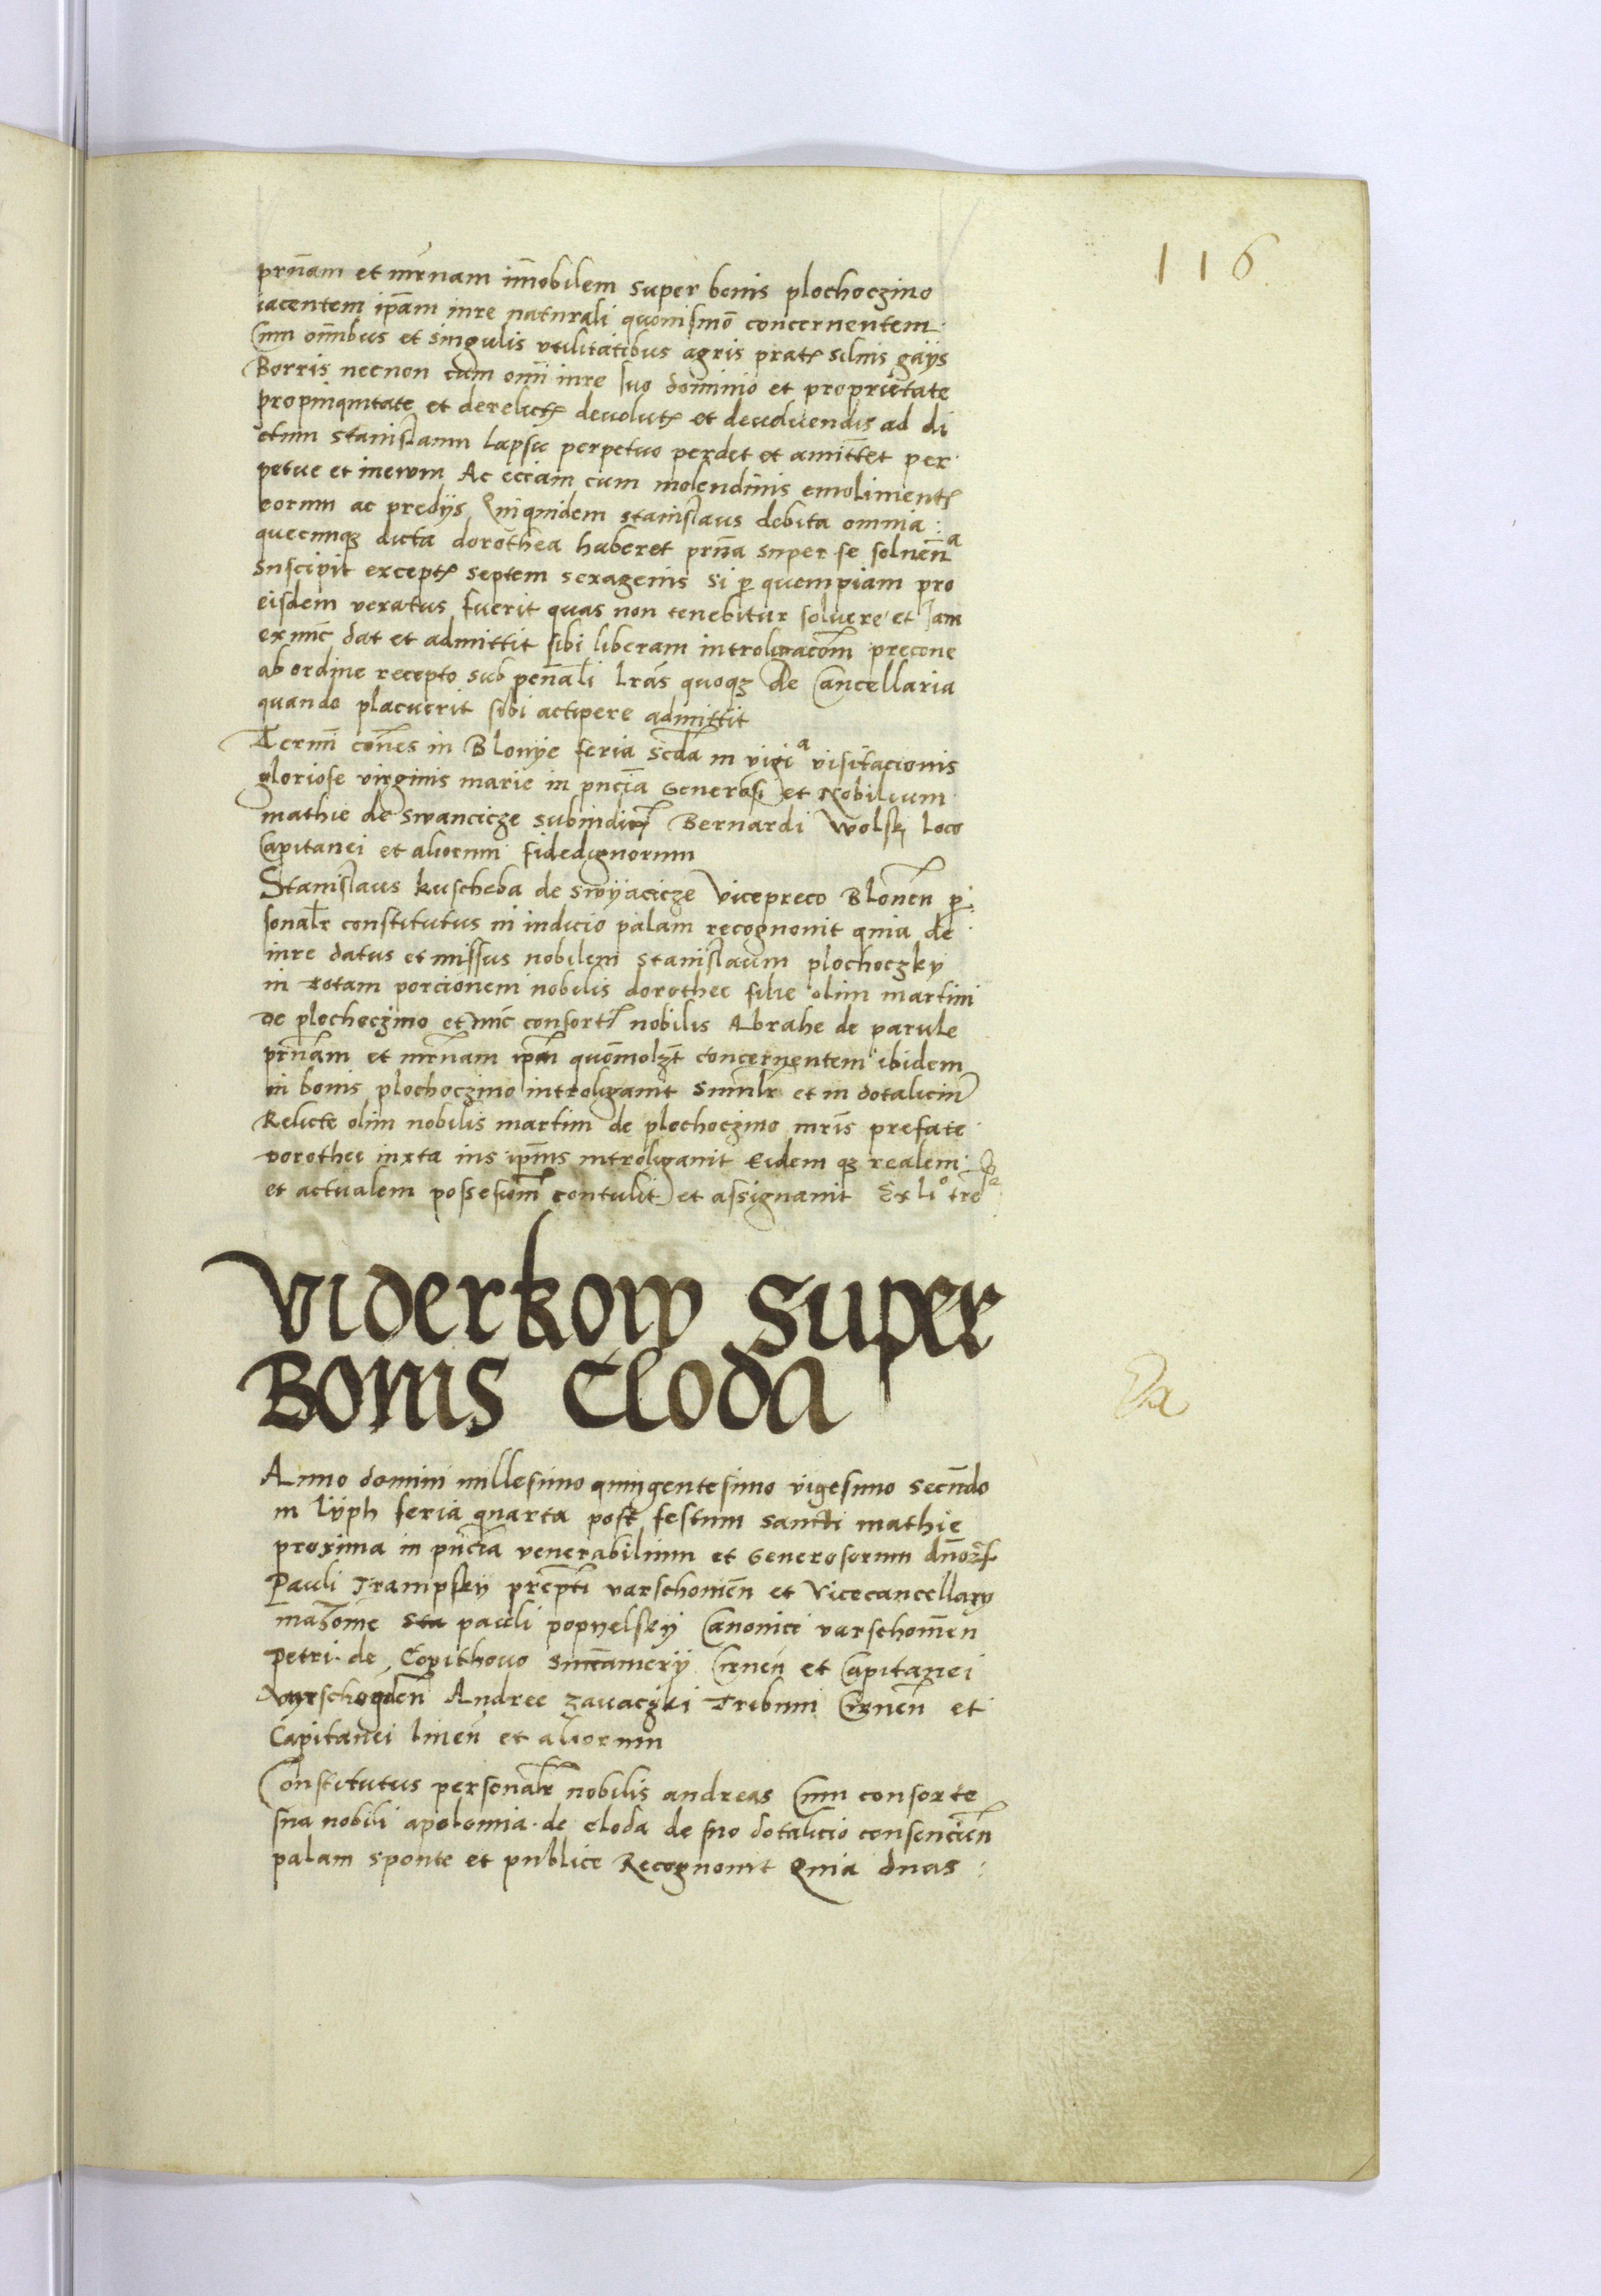 116
prn̄am et mr̄nam im̄obilem super bonis plochoczino
iacentem ip̄am iure naturali quouismō concernentem
Cum om̄ibus et singulis vtilitatibus agris prat siluis gays
Borris necnon cum om̄i iure suo dominio et proprietate
propinquitate et derelict deuolut et deuoluendis ad di
ctum stanislaum Lapsu perpetuo perdet et amittet per
petue et in ewm Ac eciam cum molendinis emoliment
eorum ac predijs Quiquidem stanislaus debita omnia
quecunqz dicta dorothea haberet prn̄a super se soluen̄a
suscipit except septem sexagenis si p quempiam pro
eisdem vexatus fuerit quas non tenebitur soluere et Jam
ex nūc dat et admittit sibi liberam introligacōm precone
ab ordine recepto sub penali lrās quoqz de Cancellaria
quando placuerit sibi accipere admittit
Term̄ con̄es in Blonye feria scd̄a in vigia visitacionis
gloriose virginis marie in pn̄cia Generosi et Nobilium
mathie de Swancicze subiudic Bernardi Wolsk Loco
Capitanei et aliorum fidedignorum
Stanislaus kuscheba de swyacicze Vicepreco Blonen̄ p
sonalr constitutus in iudicio palam recognouit quia de
iure datus et missus nobilem stanislaum plochoczky
in totam porcionem nobilis dorothee filie olim martini
de plochoczino et nūc consort nobilis Abrahe de parule
prn̄am et mr̄nam ip̄am quōmolzt concernentem ibidem
in bonis plochoczino introligauit similr et in dotalicium
Relicte olim nobilis martini de plochoczino mr̄is prefate
dorothee iuxta ius ip̄ius introligauit Eidem qz realem
et actualem possesiom̄ contulit et assignauit Ex lio tre
Viderkow super
Bonis Cloda
Anno domini millesimo quingentesimo vigesimo secūdo
in lyph feria quarta post festum sancti mathie
proxima in pn̄cia venerabilium et Generosorum dn̄oz
Pauli Trampsky prep̄ti varschouien̄ et Vicecancellary
masouie sta pauli popyelsky Canonici varschouien̄
petri de Copithouo Cirnen̄ et Capitanei
varschouien̄ Andree zauaczki Tribuni Cirnen̄ et
Capitanei liuen̄ et aliorum
Constitutus personalr nobilis andreas Cum consorte
sua nobili apolonia de cloda de suo dotalicio consencien̄
palam sponte et publice Recognouit Quia duas